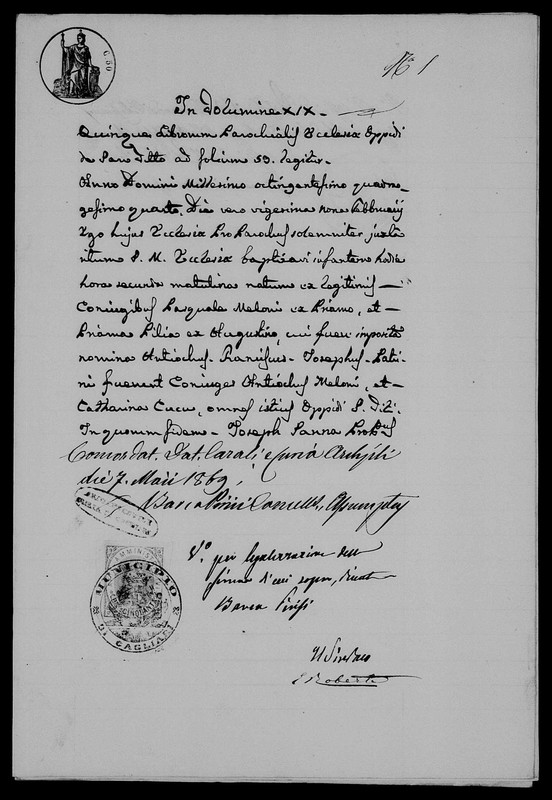 C. 50
N° 1
In Volumine XIX
Quinque Librorum Parochialis Ecclesiæ Oppidi
de ad folium 59. legitur
Anno Domini Millesimo octingentesimo quadra
gesimo quarto. Die vero vigesima nona Februarij
Ego hujus Ecclesiæ ProParochus solemniter juxta
ritum S. M. Ecclesiæ baptizavi infantem hodie
hora secunda matutina natum ex legitimis
Coniugibus Pasquale Meloni ex Priamo, et
Priama Pilia ex Augustino, cui fuere imposita
nomina Antiochus Franciscus Josephus. Patri-
ni fuerunt Coniuges Antiochus Meloni, et
Catharina Cucu, omnes istius Oppidi S. Diti.
In quorum fidem Joseph Sanna
Concordat. Dat. Carali e Curia
die 7. Maii 1869
Barca
V.° per legalizzazione della
firma di cui sopra, del
Barca
Il Sindaco
E Roberti
MUNICIPIO
DI CAGLIARI